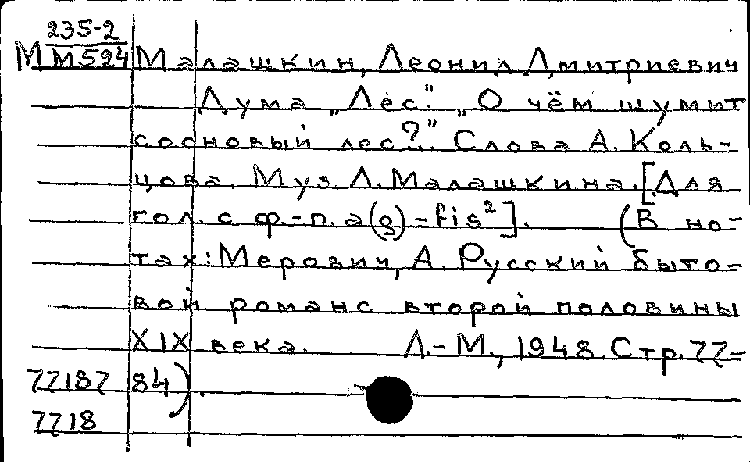 235-2
М М524 Малашкин, Леонид Дмитриевич
Дума „Лес". „О чём шумит
сосновый лес?". Слова А. Коль-
цова. Муз. Л. Малашкина. [Для
гол. с ф-п. a(g)-fis²]. (В но-
тах: Мерович, А. Русский быто-
вой романс второй половины
XIX века. Л.-М., 1948. Стр. 77-
77187 84).
7718